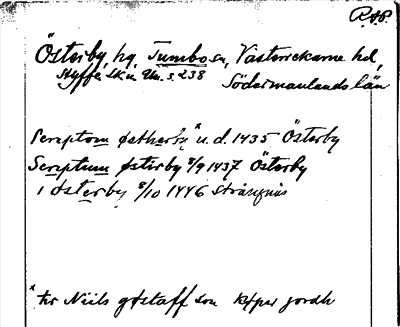 R.A.P.
Österby, hg, Tumbo sn, Västerrekarne hd,
Styffe, Sk.u. Un. s. 238 Södermanlands län
Scriptom østherby* u.d. 1435 Österby
Scriptum østerby 8/9 1437 Österby
i østerby 8/10 1446 Strängnäs
* hr Niils gøstaff son køper jordh